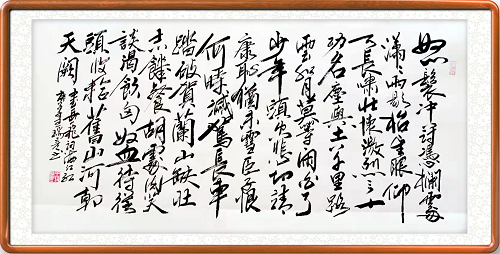 怒髮冲冠憑欄處
瀟瀟雨歇抬望眼仰
天長嘯壯懷激烈三十
功名塵與土八千里路
雲和月莫等閑白了
少年頭空悲切靖
康恥猶未雪臣子恨
何時滅駕長車
踏破賀蘭山缺壯
志飢餐胡虜肉笑
談渴飲匈奴血待從
頭收拾舊山河朝
天闕